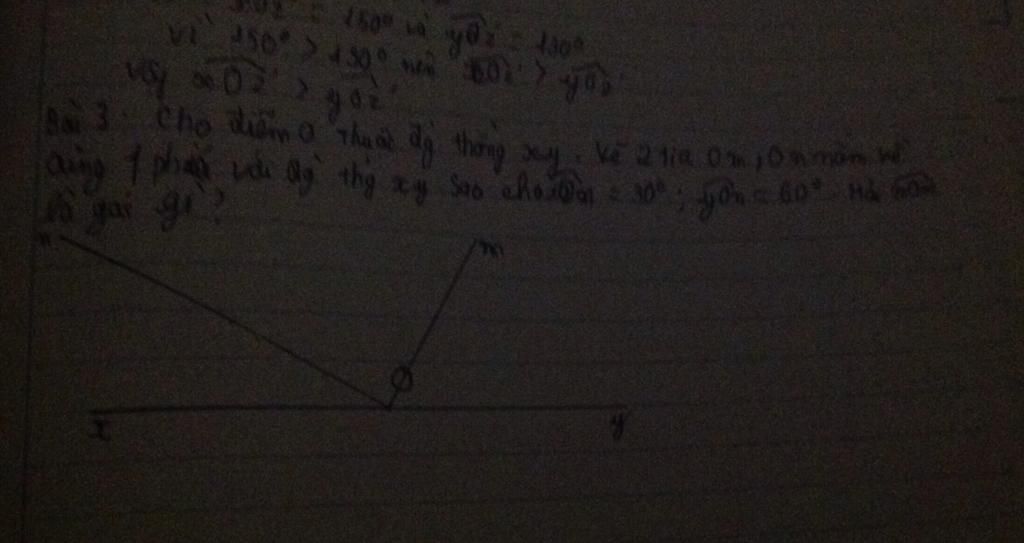 = 150° và yOz = 130°
Vì 150° > 130° nên xOz > yOz
Vậy xOz > yOz
Bài 3. Cho điểm O thuộc đg thẳng xy. Vẽ 2 tia Om, On nằm về
cùng 1 phía với đg thg xy sao cho = 30°; yOn = 60°. Hỏi mOn
là góc gì?
n m
O
x y